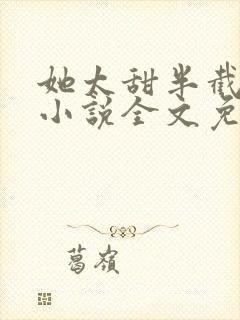 她太甜半截
小説全文免
葛嶺